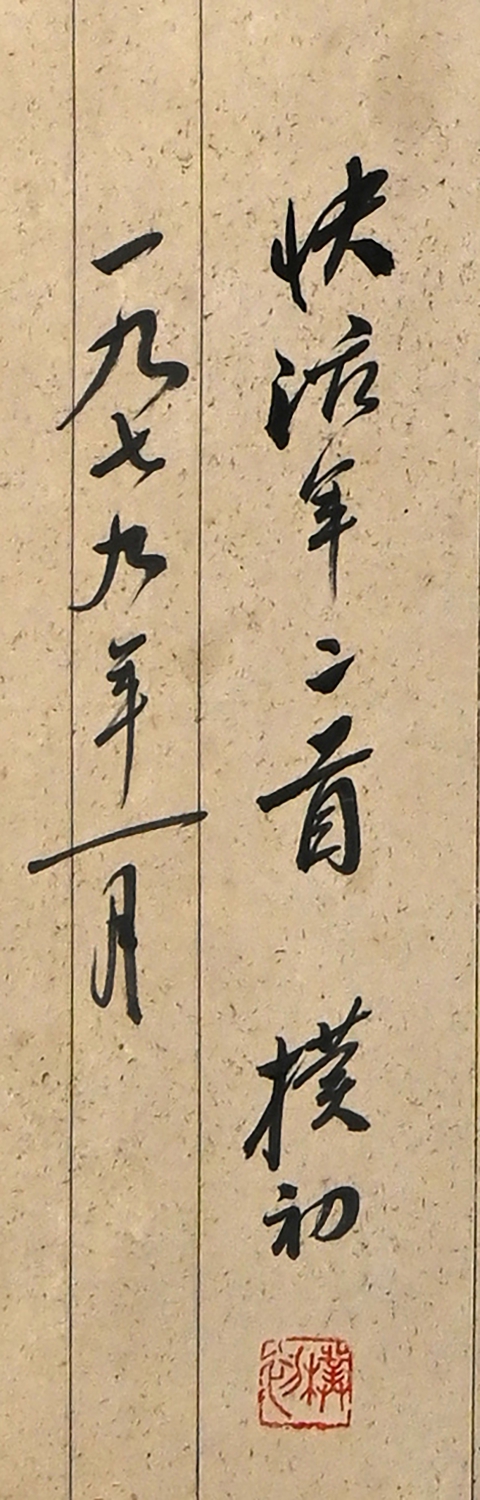 快活年二首 樸初
樸初
一九七九年一月